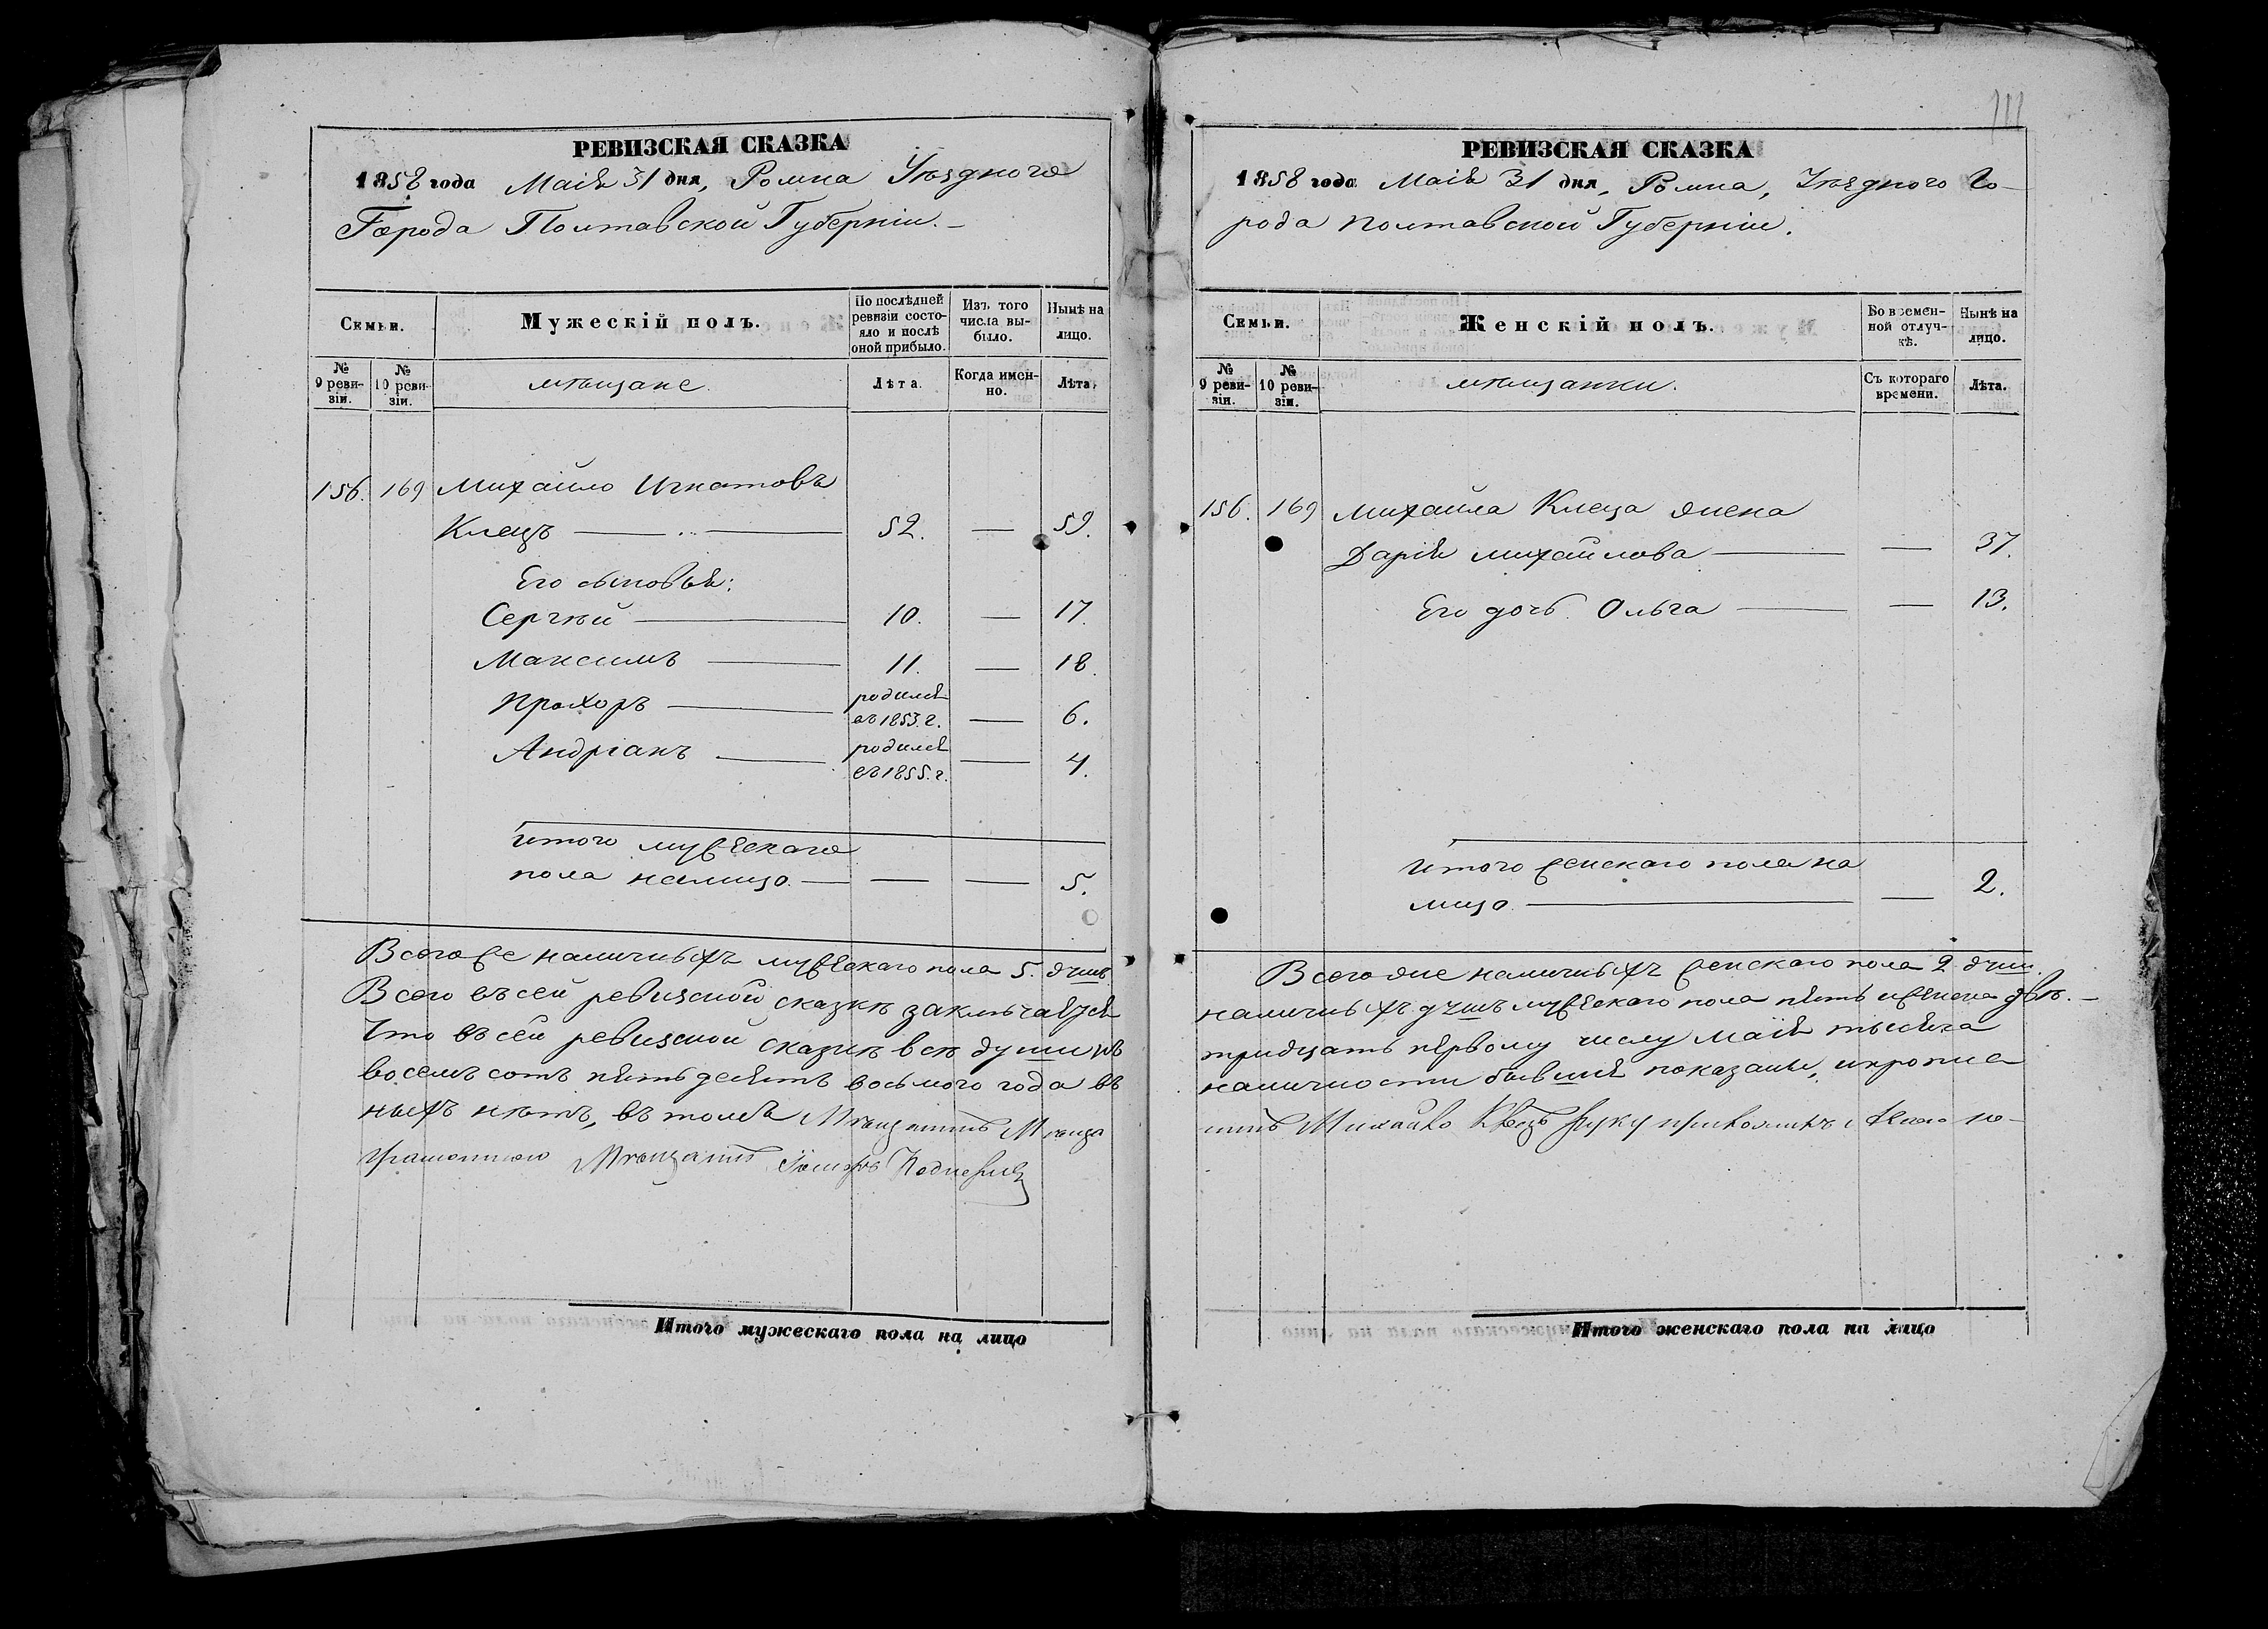 РЕВИЗСКАЯ СКАЗКА
1858 года Маія 31 дня, Ромна Уѣзднаго
Города Полтавской Губерніи. —
Семьи.
Мужескій полъ.
По послѣдней
ревизіи состо-
яло и послѣ
оной прибыло.
Изъ того
числа вы-
было.
Нынѣ на
лицо.
№
9 реви-
зіи.
№
10 реви-
зіи.
мѣщане.
Лѣта.
Когда имен-
но.
Лѣта.
156. 169 Михайло Игнатовъ
Клецъ — 52. — 59.
Его сыновья:
Сергѣй — 10. — 17.
Максимъ — 11. — 18.
Прохоръ — родился въ 1853. г. — 6.
Андріанъ — родился въ 1855. г. — 4.
Итого мужескаго
пола налицо. — — — 5.
Всего же наличныхъ мужескаго пола 5. душъ.
Всего въ сей ревизской сказкѣ заключается
Что въ сей ревизской сказкѣ всѣ души къ
восемъ сотъ пятьдесятъ восьмого года въ
ныхъ нѣтъ, въ томъ Мѣщанинъ
грамотною Мѣщанинъ
Итого мужескаго пола на лицо
111
РЕВИЗСКАЯ СКАЗКА
1858 года Маія 31 дня, Ромна, Уѣзднаго Го-
рода Полтавской Губерніи.
Семьи.
Женскій полъ.
Во времен-
ной отлуч-
кѣ.
Нынѣ на
лицо.
№
9 реви-
зіи.
№
10 реви-
зіи.
мѣщанки.
Съ котораго
времени.
Лѣта.
156. 169 Михайла Клеца жена
Дарія Михайлова — — 37.
Его дочь Ольга — — 13.
Итого женскаго пола на
лицо — — 2.
Всего же наличныхъ женскаго пола 2 души.
наличныхъ душъ мужескаго пола пять и женска двѣ. —
тридцать первому числу Маія тысяча
наличности бывшія показаны, и пропис
Михайло Клецъ руку приложилъ
Итого женскаго пола на лицо